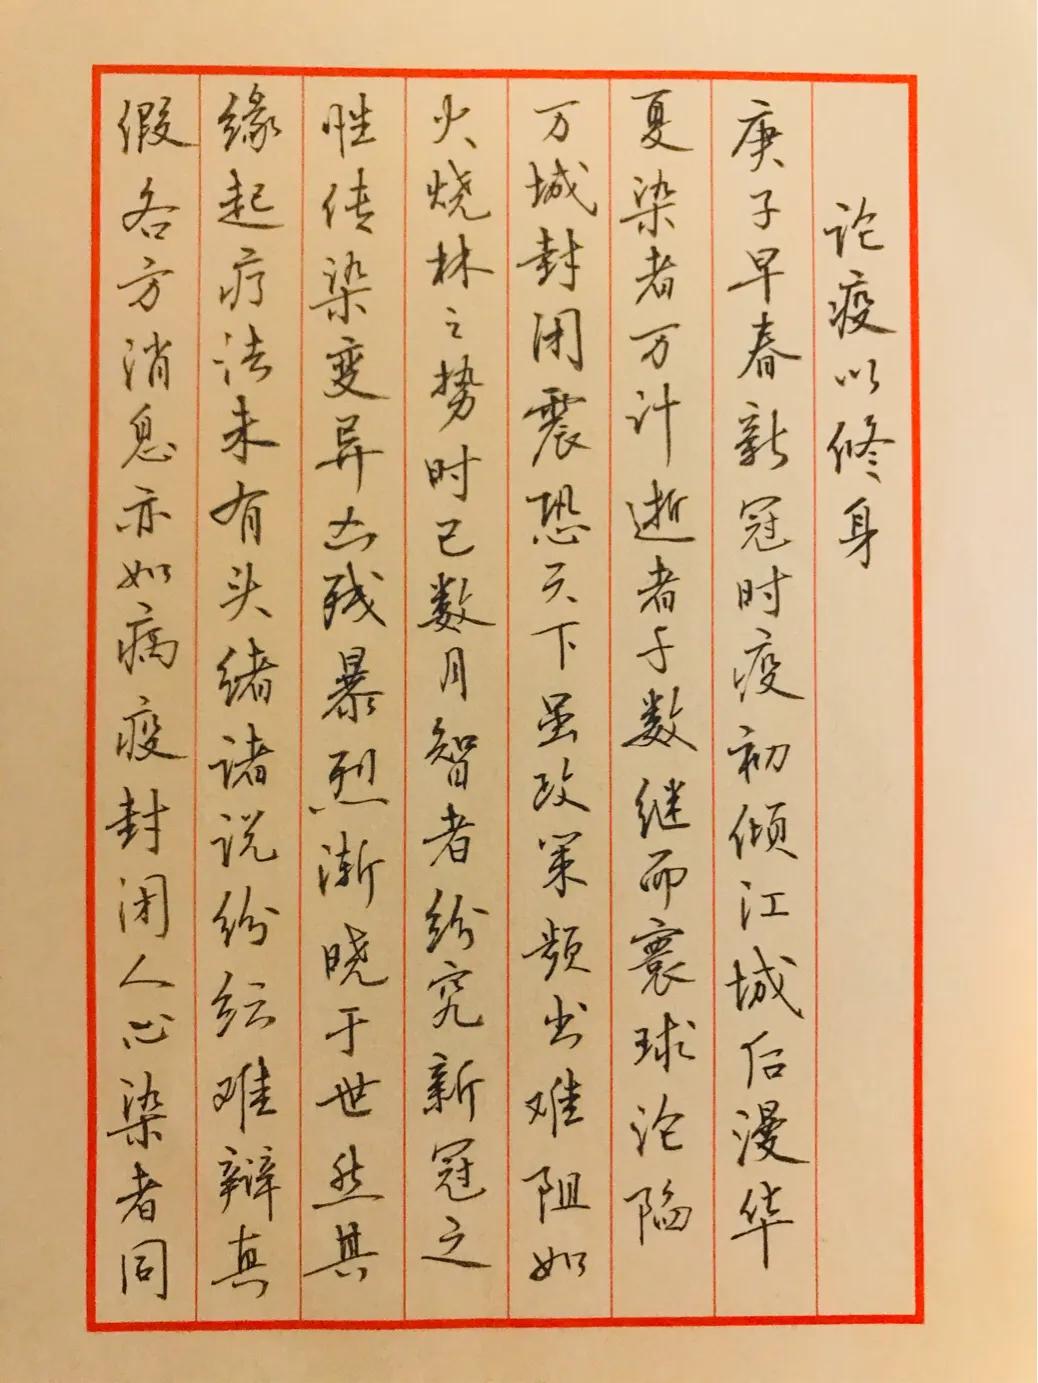 论疫以修身
庚子早春新冠时疫初倾江城后漫华
夏染者万计逝者千数继而寰球沦陷
万城封闭震恐天下虽政策频出难阻如
火烧林之势时已数月智者纷究新冠之
性传染变异凶残暴烈渐晓于世然其
缘起疗法未有头绪诸说纷纭难辩真
假各方消息亦如病疫封闭人心染者同